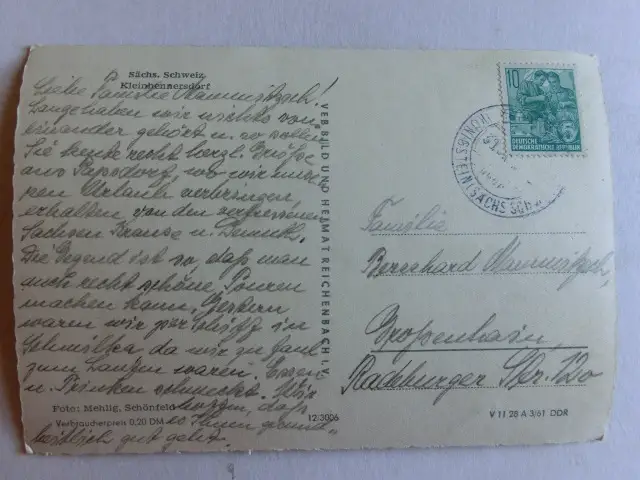 Sächs. Schweiz
Kleinhennersdorf
Liebe Familie
Lange haben wir nichts von-
einander gehört u. so sollen
Sie heute recht herzl. Grüße
aus Papsdorf, wo wir unse-
ren Urlaub verbringen,
erhalten von den
Sachsen Krause u.
Die Gegend ist so, daß man
auch recht schöne Touren
machen kann. Gestern
waren wir per Schiff in
Schmilka, da wir zu faul
zum Laufen waren. Essen
u. Trinken schmeckt. Wir
hoffen, daß
es Ihnen gesund-
heitlich gut geht.
Foto: Mehlig, Schönfeld
Verbraucherpreis 0,20 DM
12/3006
VEB BILD UND HEIMAT REICHENBACH i. V.
10
5
DEUTSCHE
DEMOKRATISCHE REPUBLIK
KÖNIGSTEIN (SÄCHS SCHWEIZ)
Familie
Bernhard
Großenhain
Radeburger Str. 12o
V 11 28 A 3/61 DDR